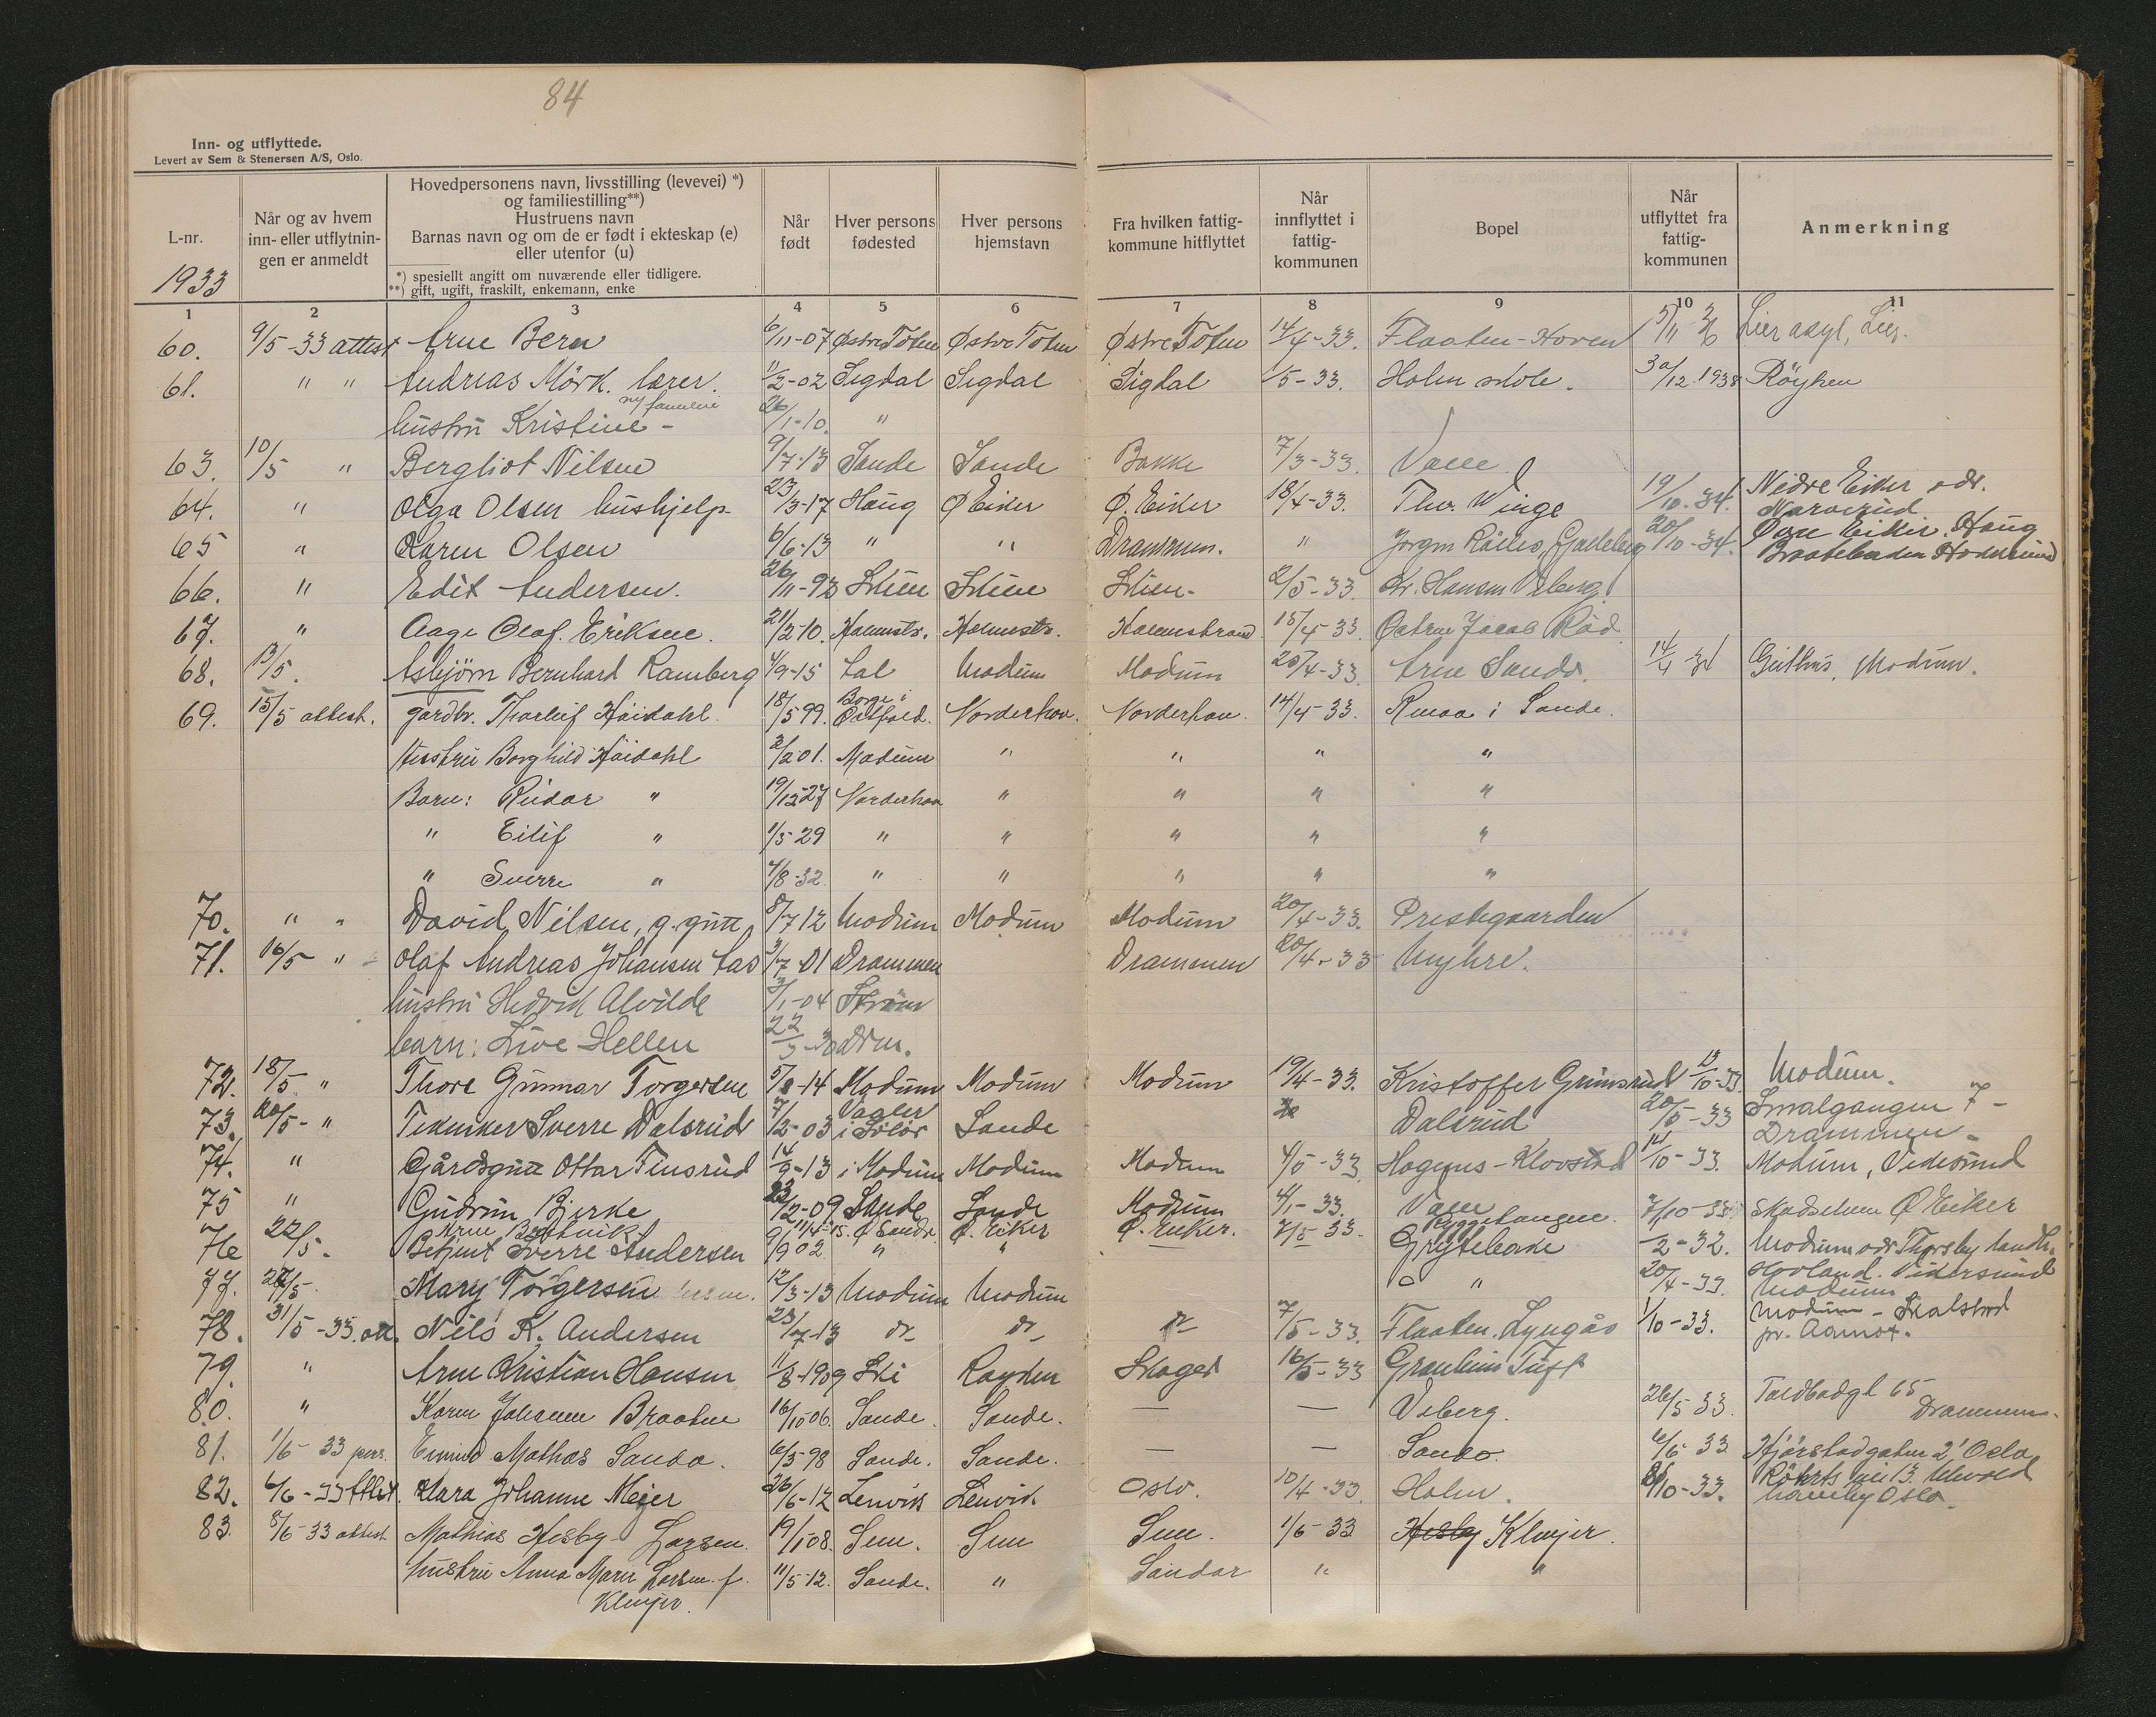 84
Inn- og utflyttede.
Levert av Sem & Stenersen A/S, Oslo.
L-nr.
1933
Når og av hvem
inn- eller utflytnin-
gen er anmeldt
Hovedpersonens navn, livsstilling (levevei) *)
og familiestilling**)
Hustruens navn
Barnas navn og om de er født i ekteskap (e)
eller utenfor (u)
*) spesiellt angitt om nuværende eller tidligere.
**) gift, ugift, fraskilt, enkemann, enke
Når
født
Hver persons
fødested
Hver persons
hjemstavn
Fra hvilken fattig-
kommune hitflyttet
Når
innflyttet i
fattig-
kommunen
Bopel
Når
utflyttet fra
fattig-
kommunen
Anmerkning
1 2 3 4 5 6 7 8 9 10 11
60. 9/5-33 attest Arne Bern 6/11-07 Østre Toten Østre Toten Østre Toten 14/4-33. Flaaten-Hoven 5/11 36 Lier asyl, Lier.
61. " " Andreas Mörk. lærer. 1/2-02 Sigdal Sigdal Sigdal 1/5-33. Holm skole. 30/12.1938 Röyken
hustru Kristine - 26/1-10. "
63. 10/5 " Bergliot Nilsen 9/7-13 Sande Sande Bakke 7/3-33. Valle
64. " Olga Olsen hushjelp 23/3-17 Haug Ø Eiker Ø. Eiker 18/4-33. Thv. Winge 19/10-34. Nedre Eiker adr.
65 " Karen Olsen 6/6-13 " " Drammen. " 20/10-34. Øvre Eiker. Haug
66. " Edit Andersen. 26/11-93 Skien Skien Skien- 2/5-33. Kr. Hansen Veberg
67. " Aage Olaf. Eriksen. 21/2-10. Holmestr. Holmestr. Holmestrand 15/4-33 Østre Jacob Röd
68. 13/5. Asbjörn Bernhard Ramberg 4/9-15 Modum Modum 20/4-33. Arne Sando. 14/4 34 Geithus, Modum.
69. 15/5 attest. gårdbr. Thorleif Höidahl 18/5 99. Borge i Østfold. Norderhov. Norderhov. 14/4-33. i Sande.
Hustru Borghild Höidahl 2/2 01. Modum " " " "
Barn: Reidar " 19/12-27 Norderhov " " " "
" Eilif " 1/5-29 " " " " "
" Sverre " 4/8-32. " " " " "
70. " " David Nilsen, g.gutt 8/7 12 Modum Modum Modum 20/4-33. Prestegaarden
71. 16/5- " Olaf Andreas Johansen 3/7-01 Drammen Drammen 20/4-33 Myhre.
hustru Hedvik Alvilde 3/1-04 Ström
barn: Live Hellen 22/3-30 Drm.
72. 18/5. " Thore Gunnar Torgersen 5/8-14 Modum Modum Modum 19/4-33. Kristoffer Grimsrud 13/10-33. Modum.
73. 20/5- " Tekniker Sverre Dalsrud 7/12-03 Vaaler i Solör Sande Dalsrud 20/5-33 Smalgangen 7-
Drammen-
74. " Gårdsgutt Ottar Finsrud 14/9-13 i Modum Modum Modum 4/5-33. Hagens-Klovstad 14/10-33. Modum, Vikersund
75 " Gudrun Bjerke 23/2-09 Sande Sande Modum 4/1-33. Valle 7/10-33
76 22/5. Betjent Sverre Andersen 9/9 02 " Ø. Eiker Ø. Eiker. 7/5-33. Gryteleake /2-32.
77. 27/5 Mary Torgersen 12/3-13 Modum Modum " 20/4-33. Modum
78. 31/5-33. att. Nils K. Andersen 23/7-13 do do do 7/5-33. Flaaten. Lyngås 1/10-33. Modum - Skalstad
79. " Arne Kristian Hansen 11/8-1909 Ski Royken Skoger 16/5-33 Tuft
80. " Karen Johanne Braaten 16/10 06. Sande. Sande. — — Veberg. 26/5 33. Toldbodgt 65
Drammen.
81. 1/6-33 pers. Mathias Sando. 6/3-98 Sande. Sande. — — Sando. 6/6 33. 2' Oslo
82. 6/6-33 Attest. Klara Johanne Mejer 26/6-12 Lenvik Lenvik Oslo. 10/4-33 Holm. /10-33.
83. 8/6-33 attest. Mathias Hesby-Larsen. 19/1 08. Sem. Sem Sem. 1/6-33 Hesby Klevjer.
hustru Anna Marie Larsen f. 11/5-12. Sande. " Sandar " "
Klevjer.